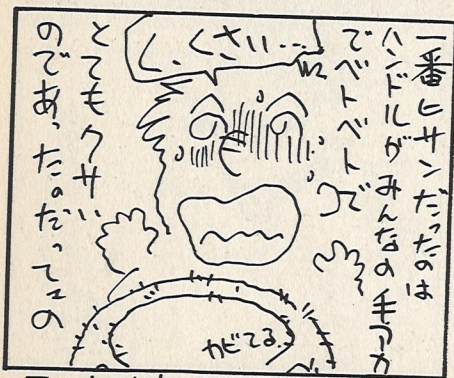 一番ヒサンだったのは
ハンドルがみんなの手アカ
でベトベトで
く、くさい…
とてもクサい
のであった。だってェの
カビてる…